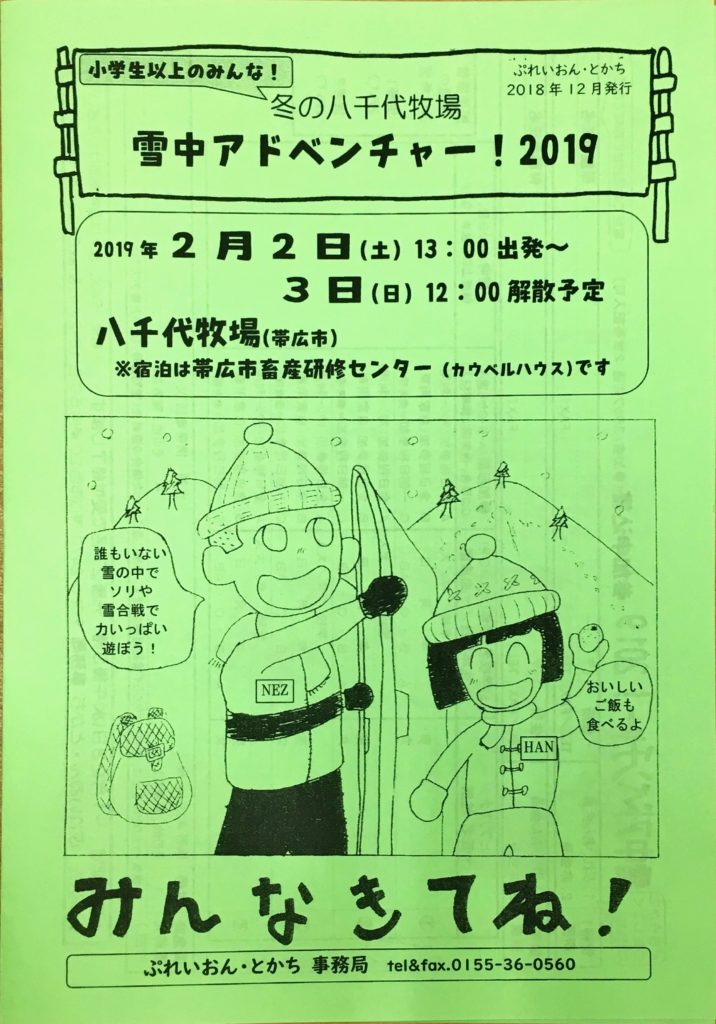 小学生以上のみんな！
ぷれいおん・とかち
2018年12月発行
冬の八千代牧場
雪中アドベンチャー！2019
2019年 2月2日(土) 13：00出発～
3日(日) 12：00解散予定
八千代牧場(帯広市)
※宿泊は帯広市畜産研修センター（カウベルハウス）です
誰もいない
雪の中で
ソリや
雪合戦で
力いっぱい
遊ぼう！
NEZ
おいしい
ご飯も
食べるよ
HAN
みんなきてね！
ぷれいおん・とかち 事務局 tel&fax.0155-36-0560